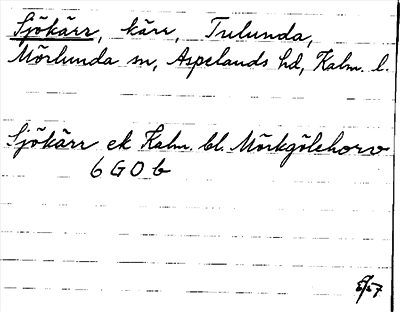 Sjökärr, kärr, Tulunda,
Mörlunda sn, Aspelands hd, Kalm. l.
Sjökärr ek Kalm. bl. Mörkgölehorv
6 G O b